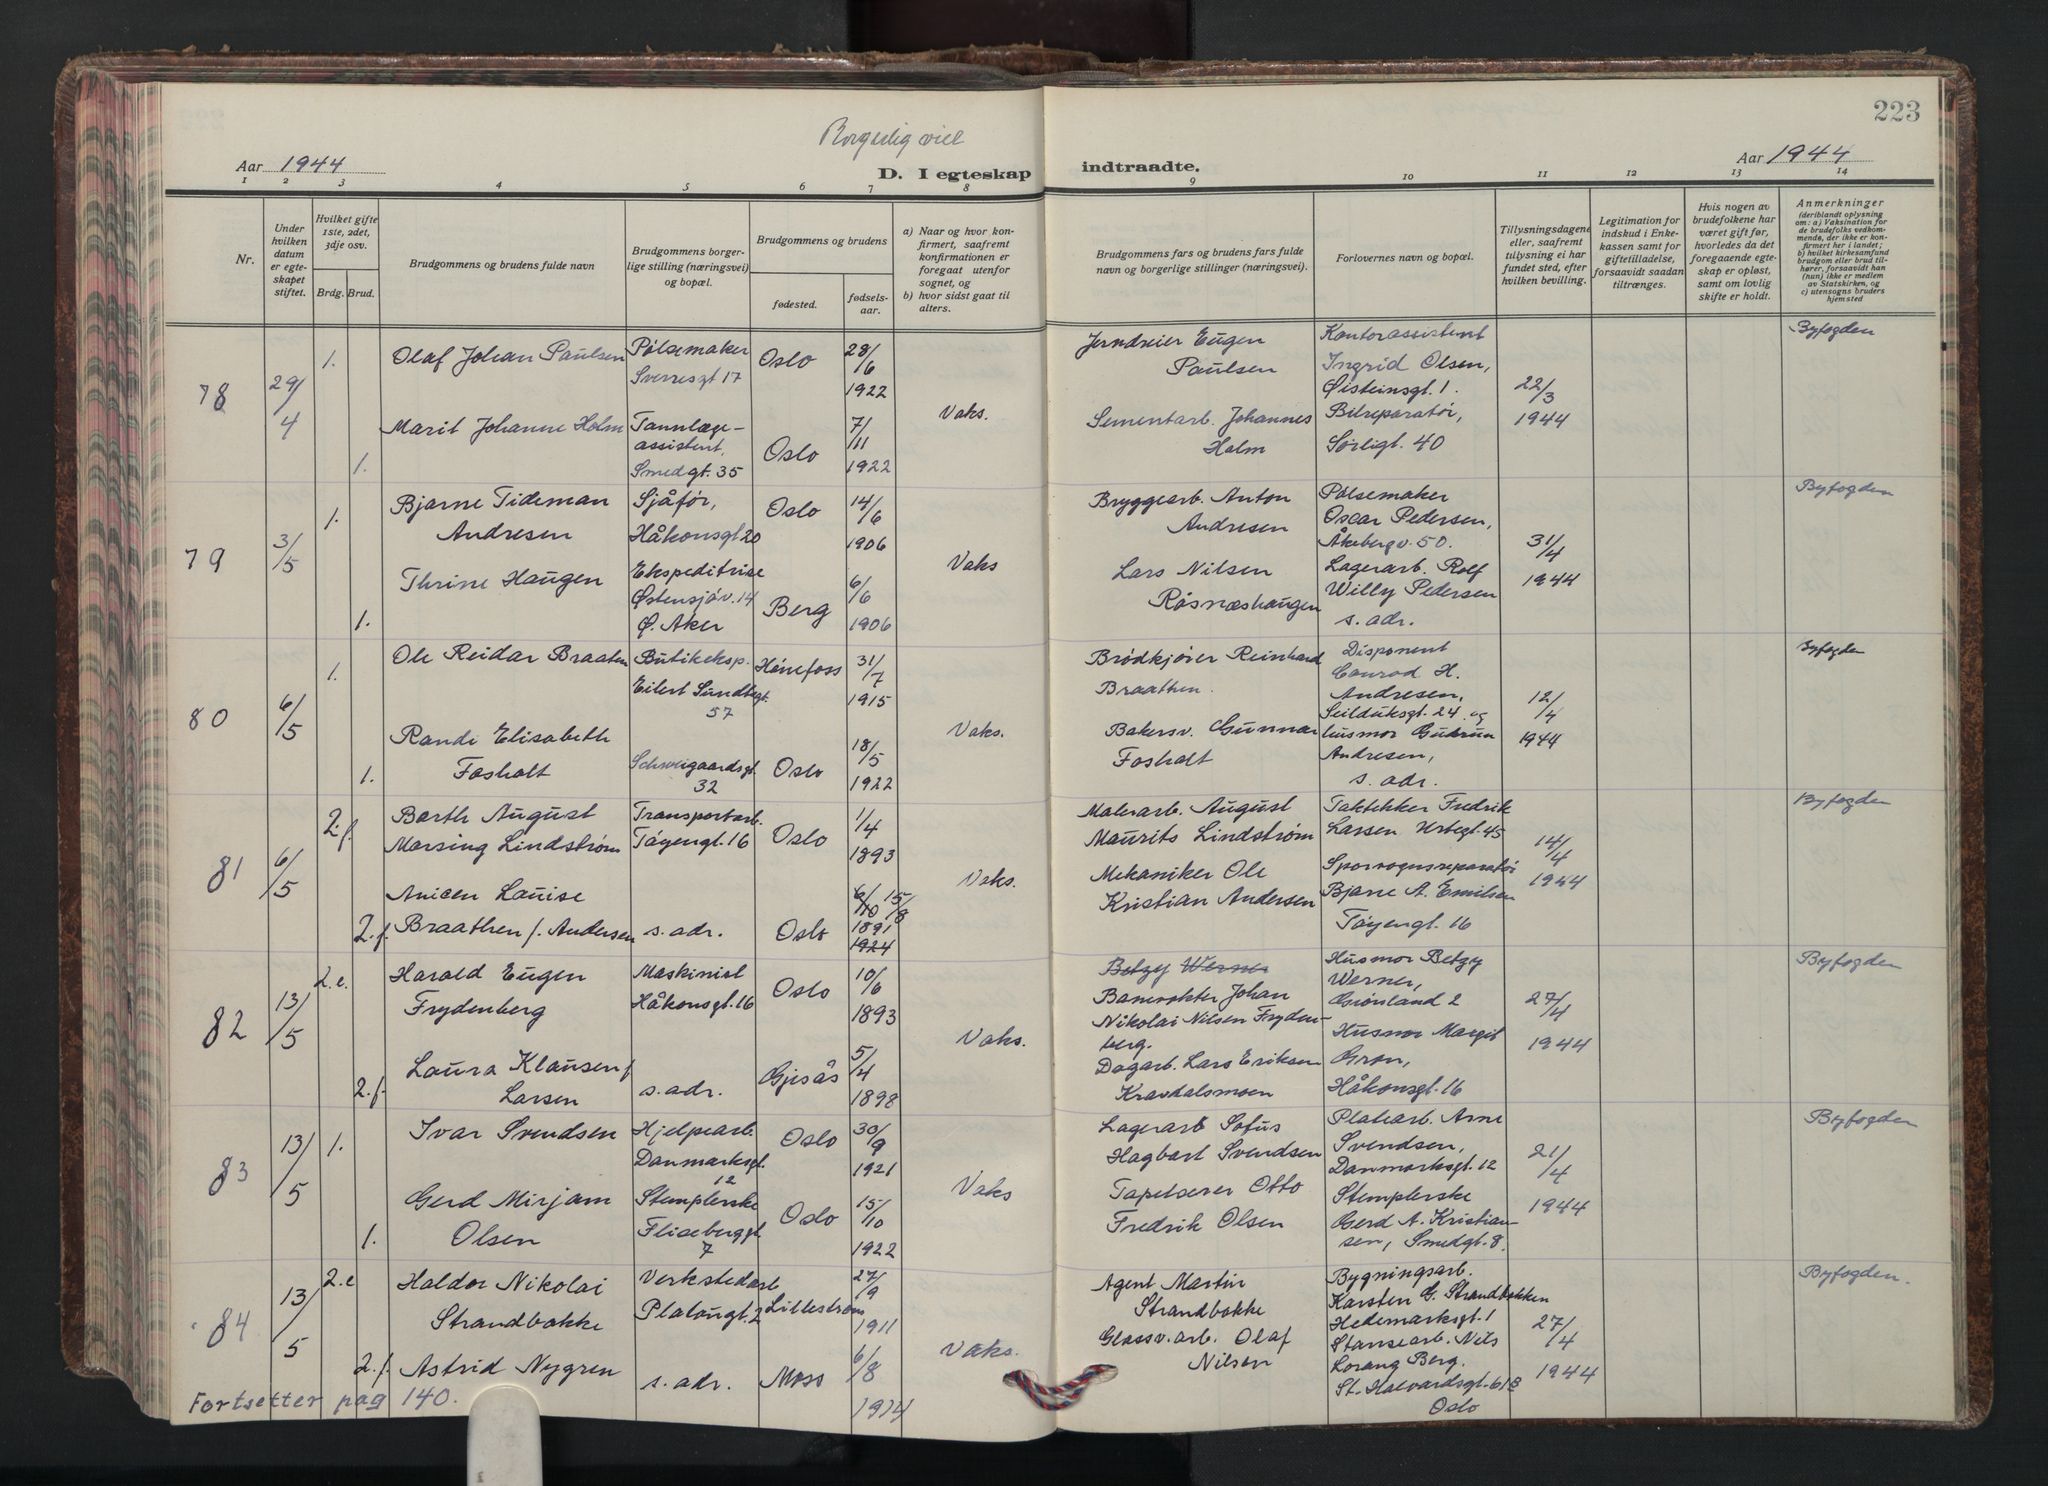 223
Borgerlig viet
Aar 1944
D. I egteskap
indtraadte.
Aar 1944
1 2 3 4 5 6 7 8 9 10 11 12 13 14
Nr.
Under hvilken datum er egteskapet stiftet.
Hvilket gifte 1ste, 2det, 3dje osv.
Brdg. Brud.
Brudgommens og brudens fulde navn
Brudgommens borgerlige stilling (næringsvei) og bopæl.
Brudgommens og brudens
fødested.
fødselsaar.
a) Naar og hvor konfirmert, saafremt konfirmationen er foregaat utenfor sognet, og
b) hvor sidst gaat til alters.
Brudgommens fars og brudens fars fulde navn og borgerlige stillinger (næringsvei).
Forlovernes navn og bopæl.
Tillysningsdagene eller, saafremt tillysning ei har fundet sted, efter hvilken bevilling.
Legitimation for indskud i Enkekassen samt for giftetilladelse, forsaavidt saadan tiltrænges.
Hvis nogen av brudefolkene har været gift før, hvorledes da det foregaaende egteskap er opløst, samt om lovlig skifte er holdt.
Anmerkninger
(deriblandt oplysning om: a) Vaksination for de brudefolks vedkommende, der ikke er konfirmert her i landet; b) hvilket kirkesamfund brudgom eller brud tilhører, forsaavidt han (hun) ikke er medlem av Statskirken, og c) utensogns bruders hjemsted
78
29/4
1.
Olaf Johan Paulsen
Pølsemaker
Sverresgt 17
Oslo
28/6
1922
Jerndreier Eugen
Paulsen
Kontorassistent
Ingrid Olsen,
Øisteinsgt. 1.
22/3
1944
Byfogden
1.
Marit Johanne Holm
Tannlæge-
assistent,
Smedgt. 35
Oslo
7/11
1922
Vaks.
Sementarb. Johannes
Holm
Bilreparatør,
Sørligt. 40
79
3/5
1.
Bjarne Tideman
Andresen
Sjåfør,
Håkonsgt 20
Oslo
14/6
1906
Bryggearb. Anton
Andresen
Pølsemaker
Oscar Pedersen,
Åkebergv. 50.
31/4
1944
Byfogden
1.
Thrine Haugen
Ekspeditrise
Østensjøv. 14
Ø. Aker
Berg
6/6
1906
Vaks
Lars Nilsen
Råsnæshaugen
Lagerarb. Rolf
Willy Pedersen
s. adr.
80
6/5
1.
Ole Reidar Braaten
Butikeksp.
Eilert Sundtsgt.
57
Hønefoss
31/7
1915
Brødkjører Reinhard
Braathen.
Disponent
Conrad H.
Andresen,
Seilduksgt. 24. og
12/4
1944
Byfogden
1.
Randi Elisabeth
Fosholt
Schweigaardsgt.
32
Oslo
18/5
1922
Vaks.
Bakersv. Gunnar
Fosholt
husmor Gudrun
Andresen,
s. adr.
81
6/5
2.f.
Barth August
Marsing Lindstrøm
Transportarb.
Tøyengt. 16
Oslo
1/4
1893
Malerarb. August
Maurits Lindstrøm
Taktekker Fredrik
Larsen Urtegt. 45
14/4
1944
Byfogden
2.f.
Anicen Louise
Braathen f. Andersen
s. adr.
Oslo
6/10 15/8
1891
1924
Vaks.
Mekaniker Ole
Kristian Andersen
Sporvognsreparatør
Bjarne A. Emilsen
Tøyengt. 16
82
13/5
2.e.
Harald Eugen
Frydenberg
Maskinist
Håkonsgt. 16
Oslo
10/6
1893
Betzy Werner
Banevokter Johan
Nikolai Nilsen Fryden-
berg.
Husmor Betzy
Werner,
Grønland 2
27/4
1944
Byfogden
2.f.
Laura Klausen f
Larsen
s. adr.
Gjesås
5/4
1898
Vaks.
Dagarb. Lars Eriksen
Kravdalsmoen
Husmor Margit
Grøn,
Håkonsgt. 16
83
13/5
1.
Ivar Svendsen
Hjelpearb.
Danmarksgt.
12
Oslo
30/9
1921
Lagerarb Sofus
Hagbart Svendsen
Platearb. Arne
Svendsen,
Danmarksgt. 12
21/4
1944
Byfogden
1.
Gerd Mirjam
Olsen
Stemplerske
Fliseberggt.
7
Oslo
15/10
1922
Vaks
Tapetserer Otto
Fredrik Olsen
Stemplerske
Gerd A. Kristian-
sen, Smedgt. 8.
84
13/5
2.e
Haldor Nikolai
Strandbakke
Verkstedarb
Platougt. 2
Lillestrøm
27/9
1911
Agent Martin
Strandbakke
Bygningsarb.
Karsten G. Strandbakken
Hedemarksgt. 1
27/4
1944
Byfogden.
2.f.
Astrid Nygren
s. adr.
Moss
6/8
1914
Vaks.
Glassv.arb. Olaf
Nilsen
Stansearb. Nils
Lorang Berg.
St. Halvardsgt. 61B
Oslo
Fortsetter pag 140.